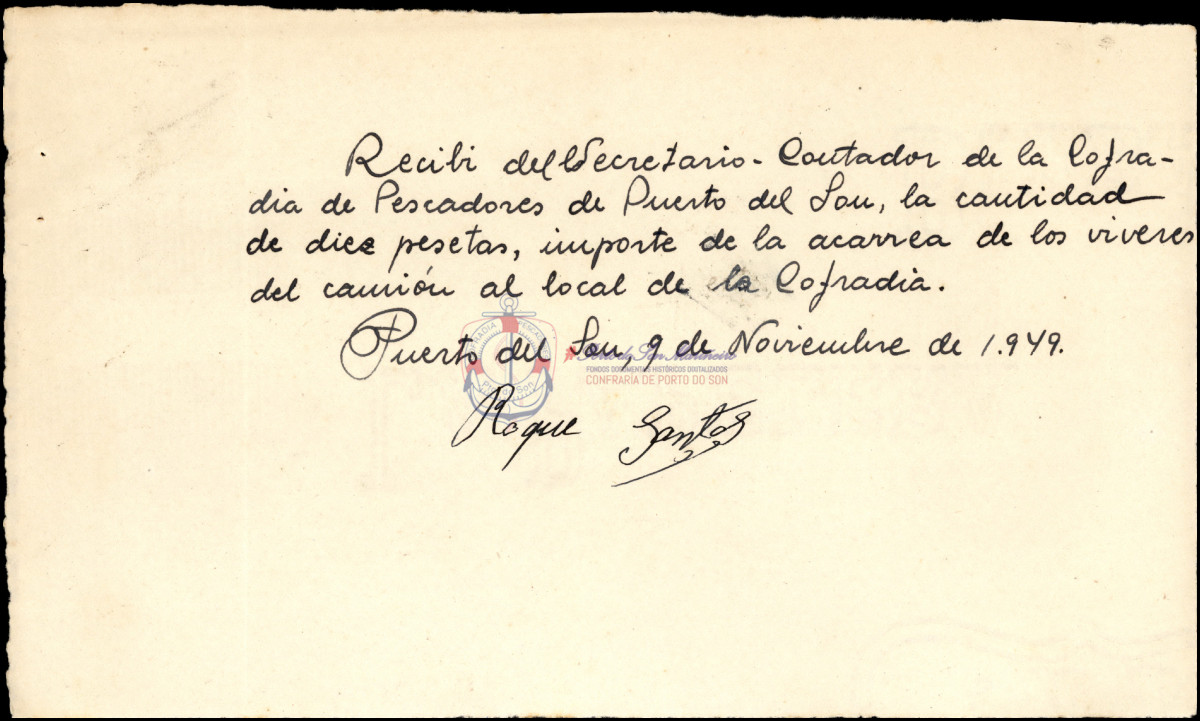 Recibi del Secretario-Contador de la Cofra-
dia de Pescadores de Puerto del Son, la cantidad
de diez pesetas, importe de la acarrea de los viveres
del camión al local de la Cofradia.
Puerto del Son, 9 de Noviembre de 1.949.
FONDOS DOCUMENTAIS HISTÓRICOS DIXITALIZADOS
CONFRARÍA DE PORTO DO SON
Roque Santos